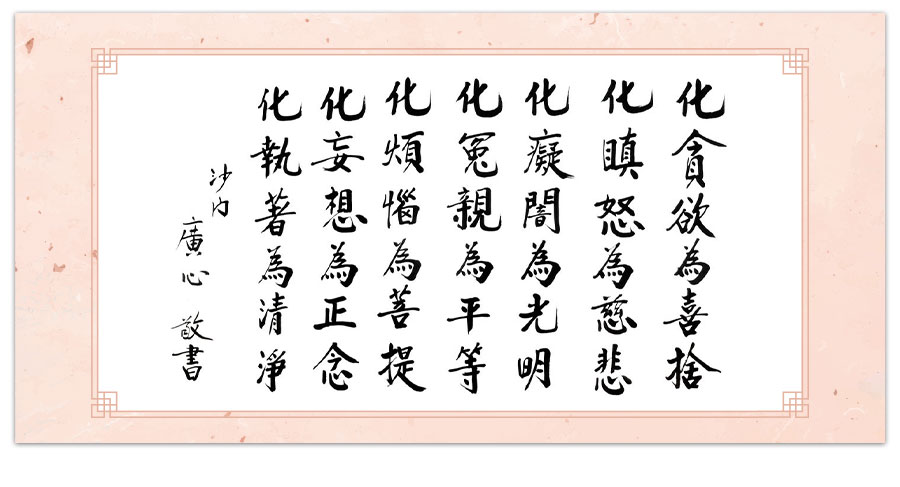 化貪欲為喜捨
化瞋怒為慈悲
化癡闇為光明
化冤親為平等
化煩惱為菩提
化妄想為正念
化執著為清淨
沙門
廣心 敬書